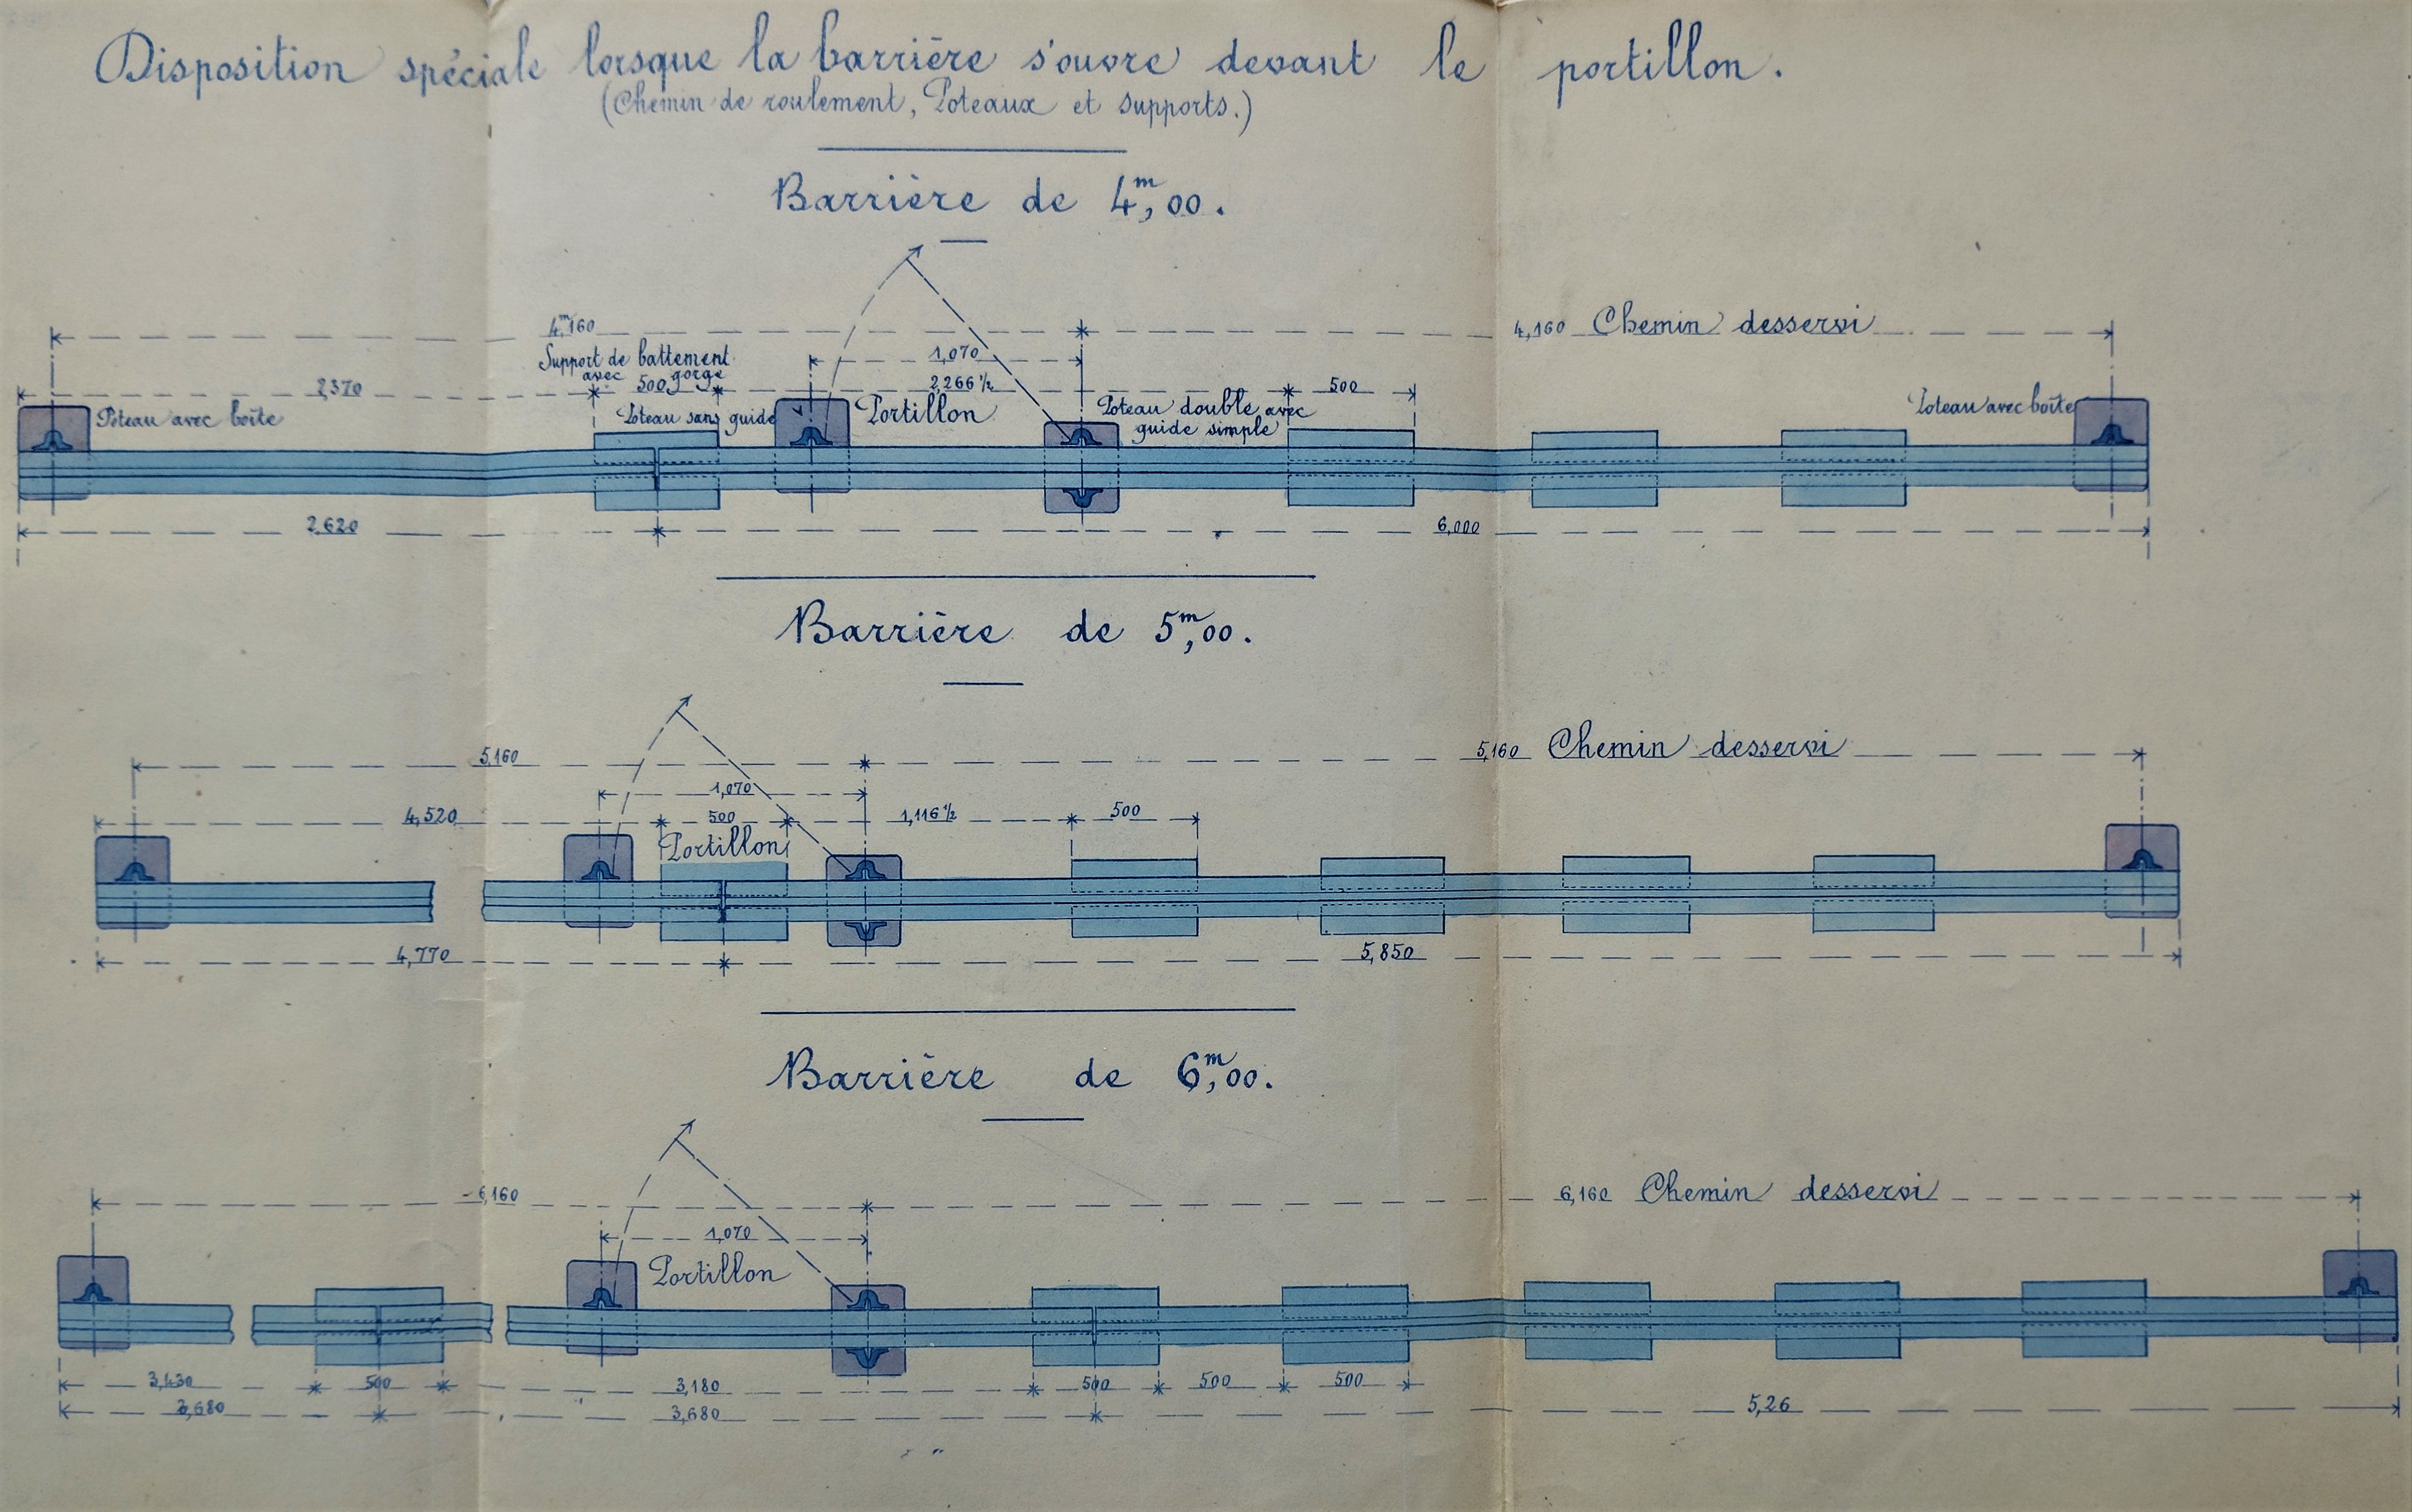 Disposition spéciale lorsque la barrière s'ouvre devant le portillon.
(Chemin de roulement, Poteaux et supports.)
Barrière de 4,ᵐ00.
4,ᵐ160
4,160 Chemin desservi
Support de battement
avec gorge
1,070
2,370
500
2,266 ½
500
Poteau avec boîte
Poteau sans guide
Portillon
Poteau double avec
guide simple
Poteau avec boîte
2,620
6,000
Barrière de 5,ᵐ00.
5,160
5,160 Chemin desservi
1,070
4,520
500
1,116 ½
500
Portillon
4,770
5,850
Barrière de 6,ᵐ00.
6,160
6,160 Chemin desservi
1,070
Portillon
3,430
500
3,180
500
500
500
3,680
3,680
5,26